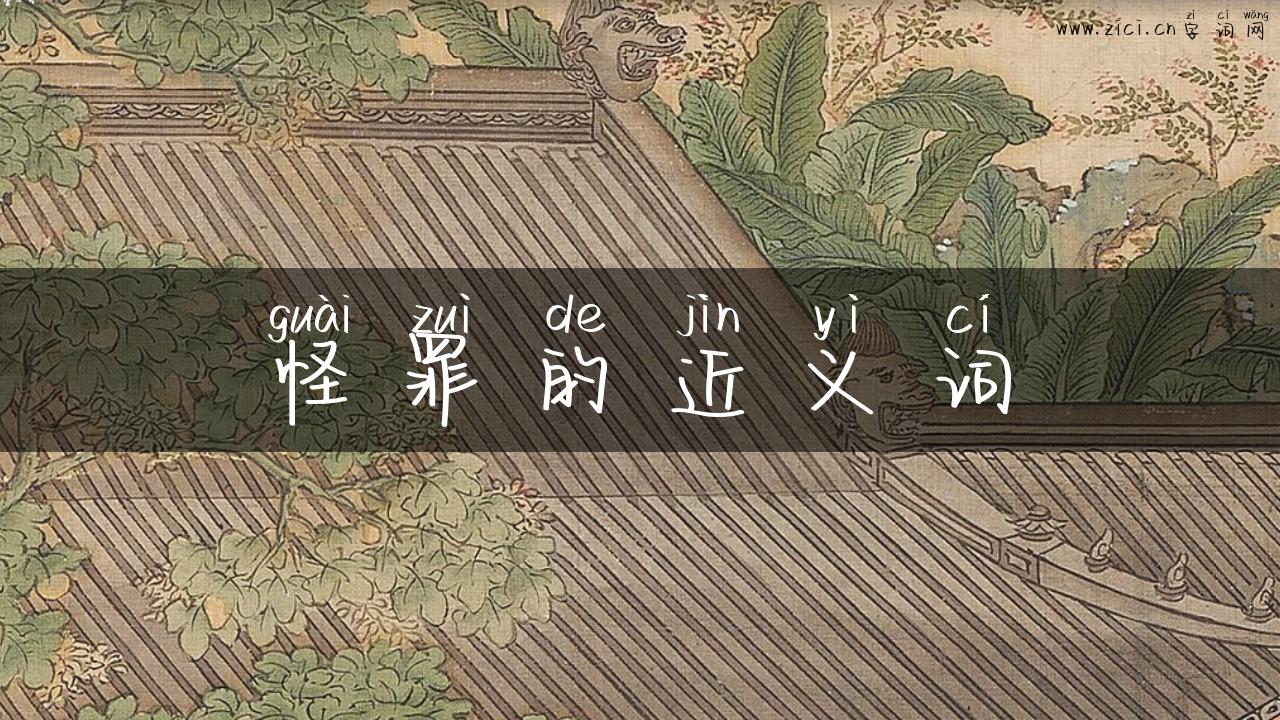 zì cí wǎng
www.zici.cn 字 词 网
guài zuì de jìn yì cí
怪 罪 的 近 义 词